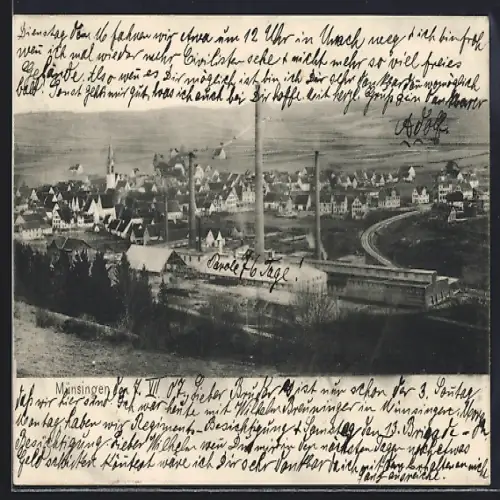 Dienstag den 16 fahren wir etwa um 12 Uhr in Urach weg & ich bin froh
wen ich mal wieder mehr Civilisten sehe & nicht mehr so viel freies
Gelände. Also wen es Dir möglich ist bin ich Dir sehr dankbar den womöglich
bald. Sonst gehts mir gut, was ich auch bei Dir hoffe. Mit herzl. Grüssen dankbarer
Adolf.
Parole 76 Tage!
Münsingen den 7. VII 07. Lieber Bruder! Es ist nun schon der 3. Sontag
daß wir hier sind. Ich war heute mit Wilhelm Breuninger in Münsingen. Morgen
Montag haben wir Regiments-Besichtigung & Samstag den 13. Brigade-
Besichtigung. Lieber Wilhelm wen Du mir in den nächsten Tagen noch etwas
Geld schicken könntest wäre ich Dir sehr dankbar da ich mit
ganz ausreiche.